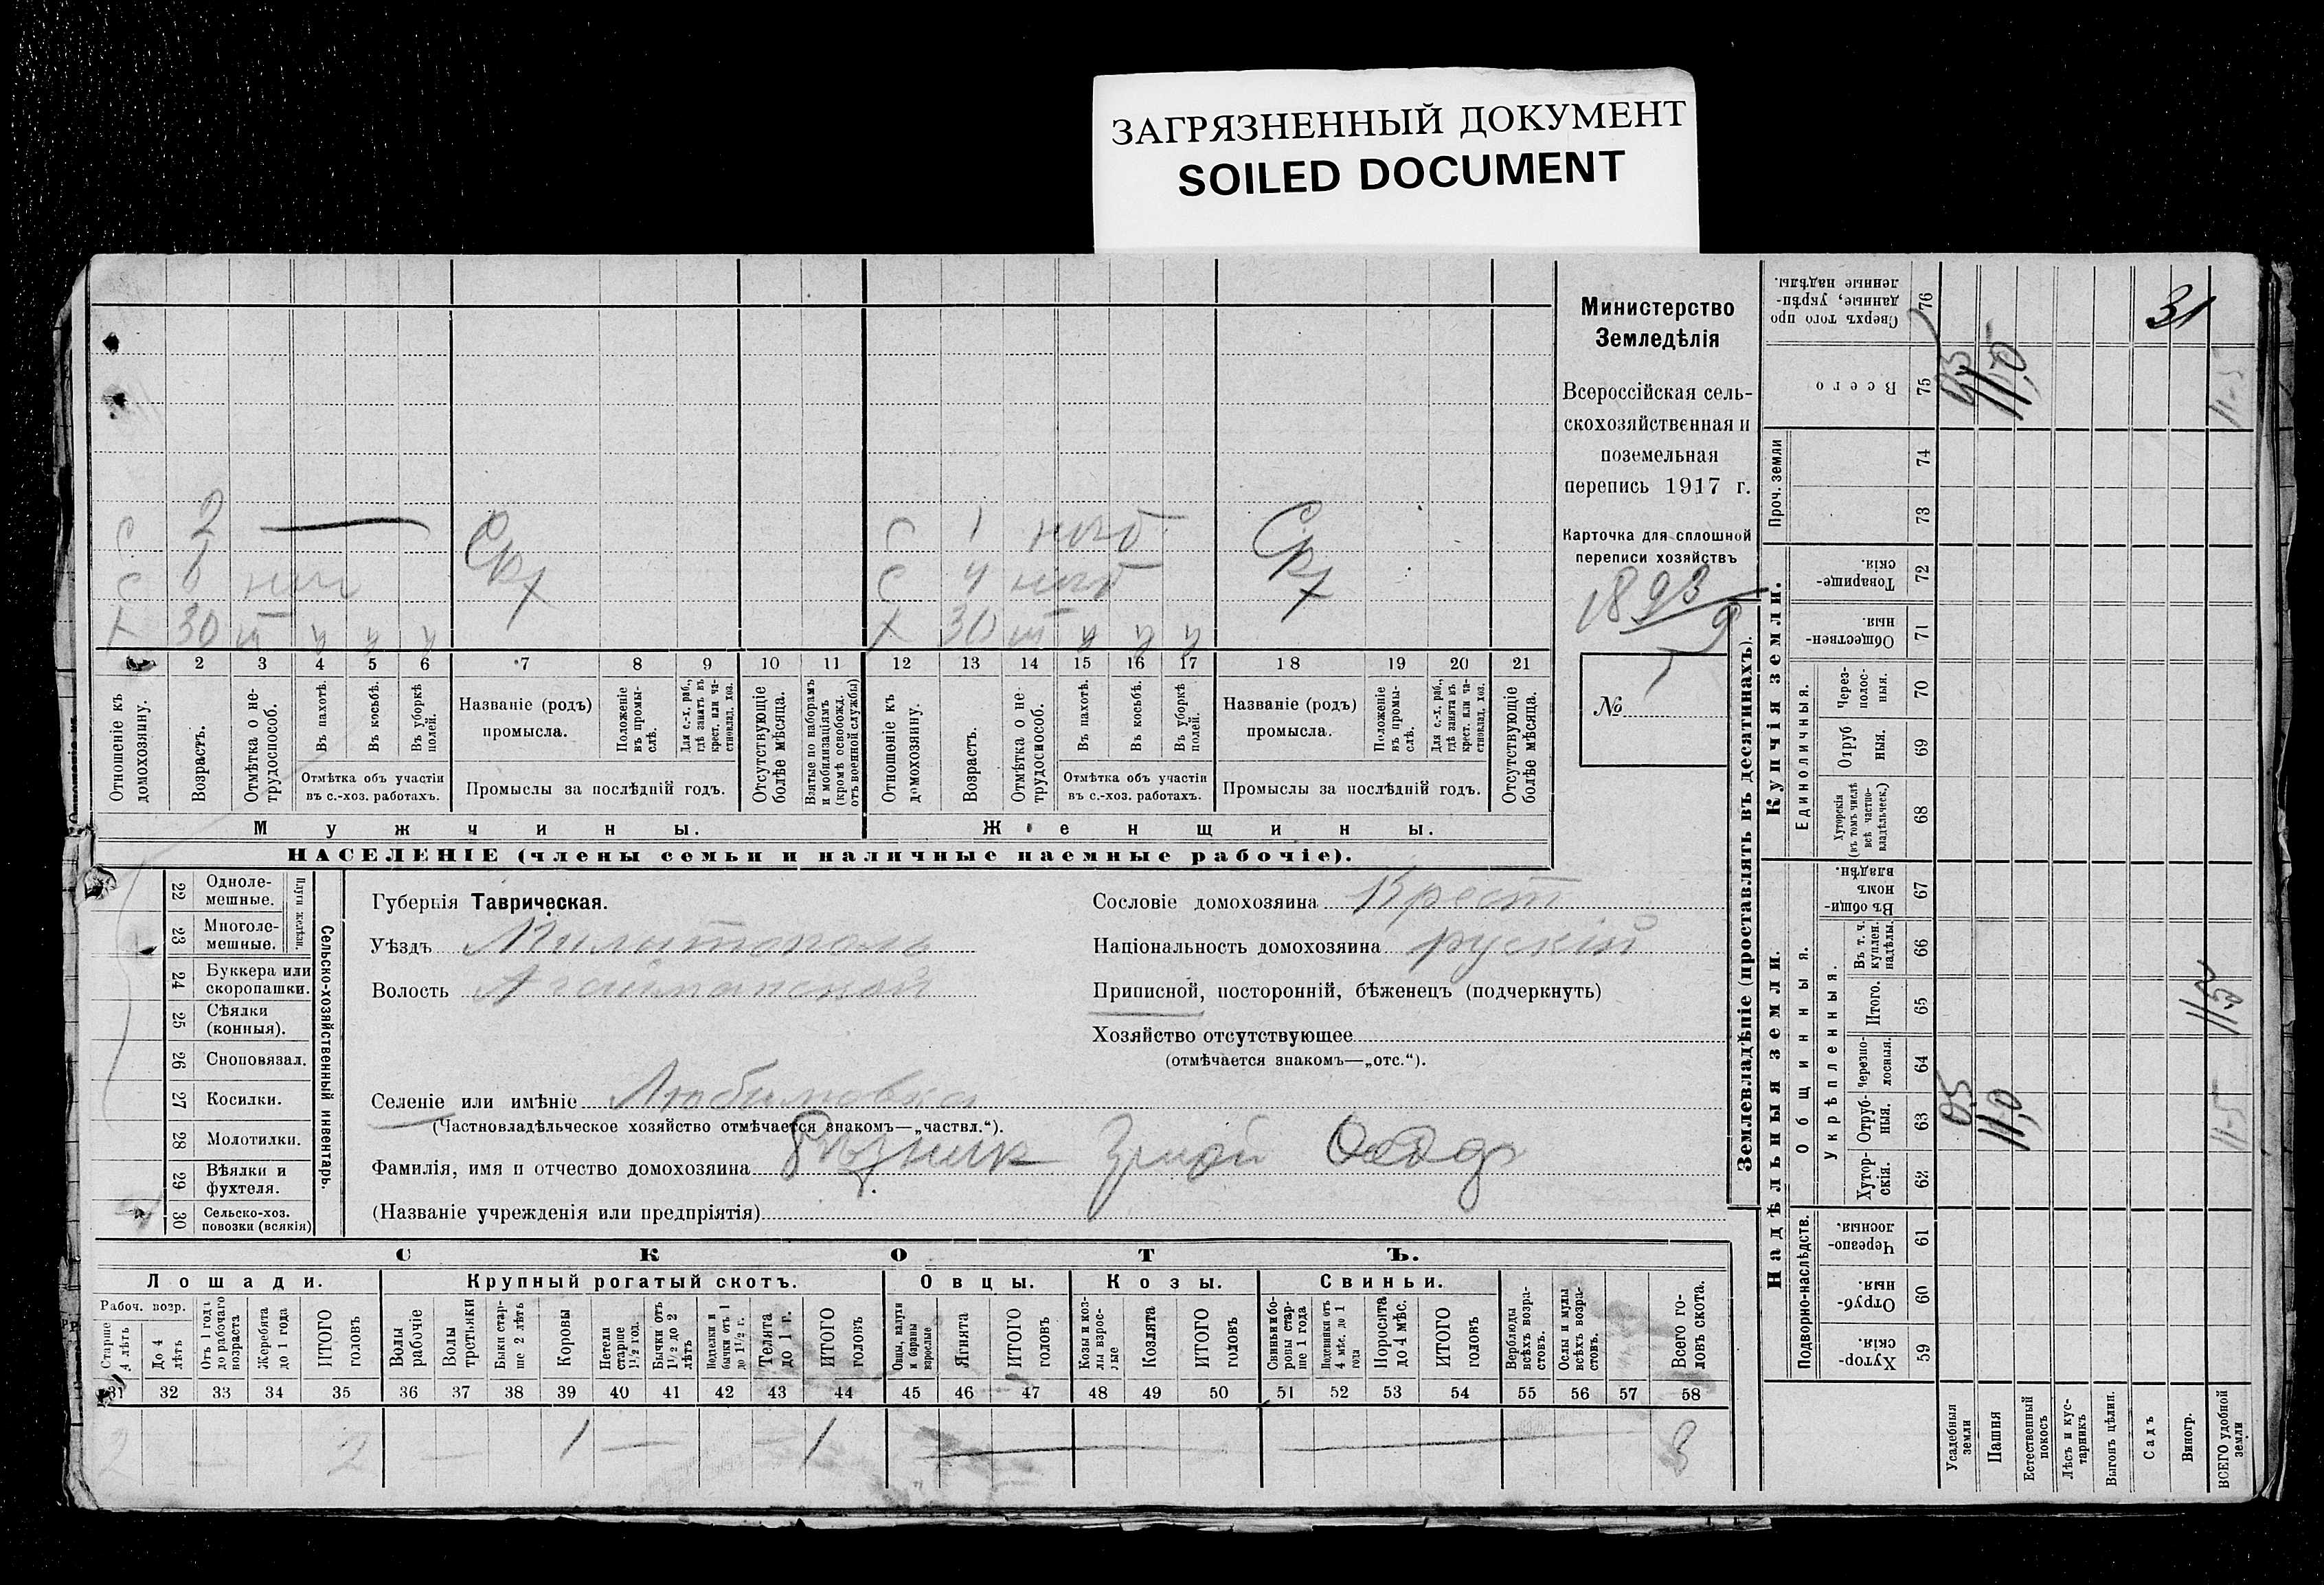 ЗАГРЯЗНЕННЫЙ ДОКУМЕНТ
SOILED DOCUMENT
31
с 2 — Ср. с 1
с с 4
х 30 ч ч ч х х 30 ч ч ч х
1 2 3 4 5 6 7 8 9 10 11 12 13 14 15 16 17 18 19 20 21
Отношеніе къ домохозяину.
Возрастъ.
Отмѣтка о не-трудоспособ.
Въ пахотѣ.
Въ косьбѣ.
Въ уборкѣ полей.
Отмѣтка объ участіи въ с.-хоз. работахъ.
Названіе (родъ) промысла.
Положеніе въ промы-слѣ.
Для с.-х. раб., гдѣ занятъ въ крест. или ча-стновлад. хоз.
Промыслы за послѣдній годъ.
Отсутствующіе болѣе мѣсяца.
Взятые по наборамъ и мобилизаціямъ (кромѣ освобожд. отъ военной службы)
Отношеніе къ домохозяину.
Возрастъ.
Отмѣтка о не-трудоспособ.
Въ пахотѣ.
Въ косьбѣ.
Въ уборкѣ полей.
Отмѣтка объ участіи въ с.-хоз. работахъ.
Названіе (родъ) промысла.
Положеніе въ промы-слѣ.
Для с.-х. раб., гдѣ занята въ крест. или ча-стновлад. хоз.
Промыслы за послѣдній годъ.
Отсутствующіе болѣе мѣсяца.
Мужчины. Женщины.
НАСЕЛЕНІЕ (члены семьи и наличные наемные рабочіе).
Министерство
Земледѣлія
Всероссійская сель-
скохозяйственная и
поземельная
перепись 1917 г.
Карточка для сплошной
переписи хозяйствъ
1893
№
22 Одноле-мешные.
23 Многоле-мешные.
Плуги желѣзн.
24 Буккера или скоропашки.
25 Сѣялки (конныя).
26 Сноповязал.
27 Косилки.
28 Молотилки.
29 Вѣялки и фухтеля.
30 Сельско-хоз. повозки (всякія)
Сельско-хозяйственный инвентарь.
Губернія Таврическая.
Уѣздъ Милитополь
Волость Агайманской
Селеніе или имѣніе Любимовка
(Частновладѣльческое хозяйство отмѣчается знакомъ—„частвл.“).
Фамилія, имя и отчество домохозяина Рѣзник
(Названіе учрежденія или предпріятія)
Сословіе домохозяина Крест
Національность домохозяина рускій
Приписной, посторонній, бѣженецъ (подчеркнуть)
Хозяйство отсутствующее
(отмѣчается знакомъ—„отс.“).
СКОТЪ.
Лошади. Крупный рогатый скотъ. Овцы. Козы. Свиньи.
Рабоч. возр.
Старше 4 лѣтъ
До 4 лѣтъ
Отъ 1 года до рабочаго возраста
Жеребята до 1 года
ИТОГО головъ
Волы рабочіе
Волы третьяки
Быки стар-ше 2 лѣтъ
Коровы
Нетели старше 1½ год.
Бычки отъ 1½ до 2 лѣтъ
Подтелки и бычки отъ 1 до 1½ г.
Телята до 1 г.
ИТОГО головъ
Овцы, валухи и бараны взрослые
Ягнята
ИТОГО головъ
Козы и коз-лы взрос-лые
Козлята
ИТОГО головъ
Свиньи и бо-ровы стар-ше 1 года
Подсвинки отъ 4 мѣс. до 1 года
Поросята до 4 мѣс.
ИТОГО головъ
Верблюды всѣхъ возра-стовъ.
Ослы и мулы всѣхъ возра-стовъ.
Всего го-ловъ скота.
31 32 33 34 35 36 37 38 39 40 41 42 43 44 45 46 47 48 49 50 51 52 53 54 55 56 57 58
2 — 2 — 1 — — 1 — — 3
Землевладѣніе (проставлять въ десятинахъ).
Надѣльныя земли. Купчія земли.
Подворно-наслѣдств.
Общинныя.
Укрѣпленныя.
Единоличныя.
Проч. земли
Хутор-скія. 59
Отруб-ныя. 60
Черезпо-лосныя. 61
Хутор-скія. 62
Отруб-ныя. 63
Черезпо-лосныя. 64
Итого. 65
Въ т. ч. куплен. надѣлы. 66
Въ общи-номъ владѣн. 67
Хуторскія (въ томъ числѣ всѣ частно-владѣльческ.) 68
Отруб-ныя. 69
Через-полос-ныя. 70
Обществен-ныя. 71
Товарище-скія. 72
73
74
Всего 75
Сверхъ того про-данные, укрѣп-ленные надѣлы. 76
Усадебныя земли 0,5 0,5
Пашня 11,0 11,0
Естественный покосъ
Лѣсъ и кус-тарникъ
Выгонъ цѣлин.
Садъ
Виногр.
ВСЕГО удобной земли 11-5 11,5 11-5